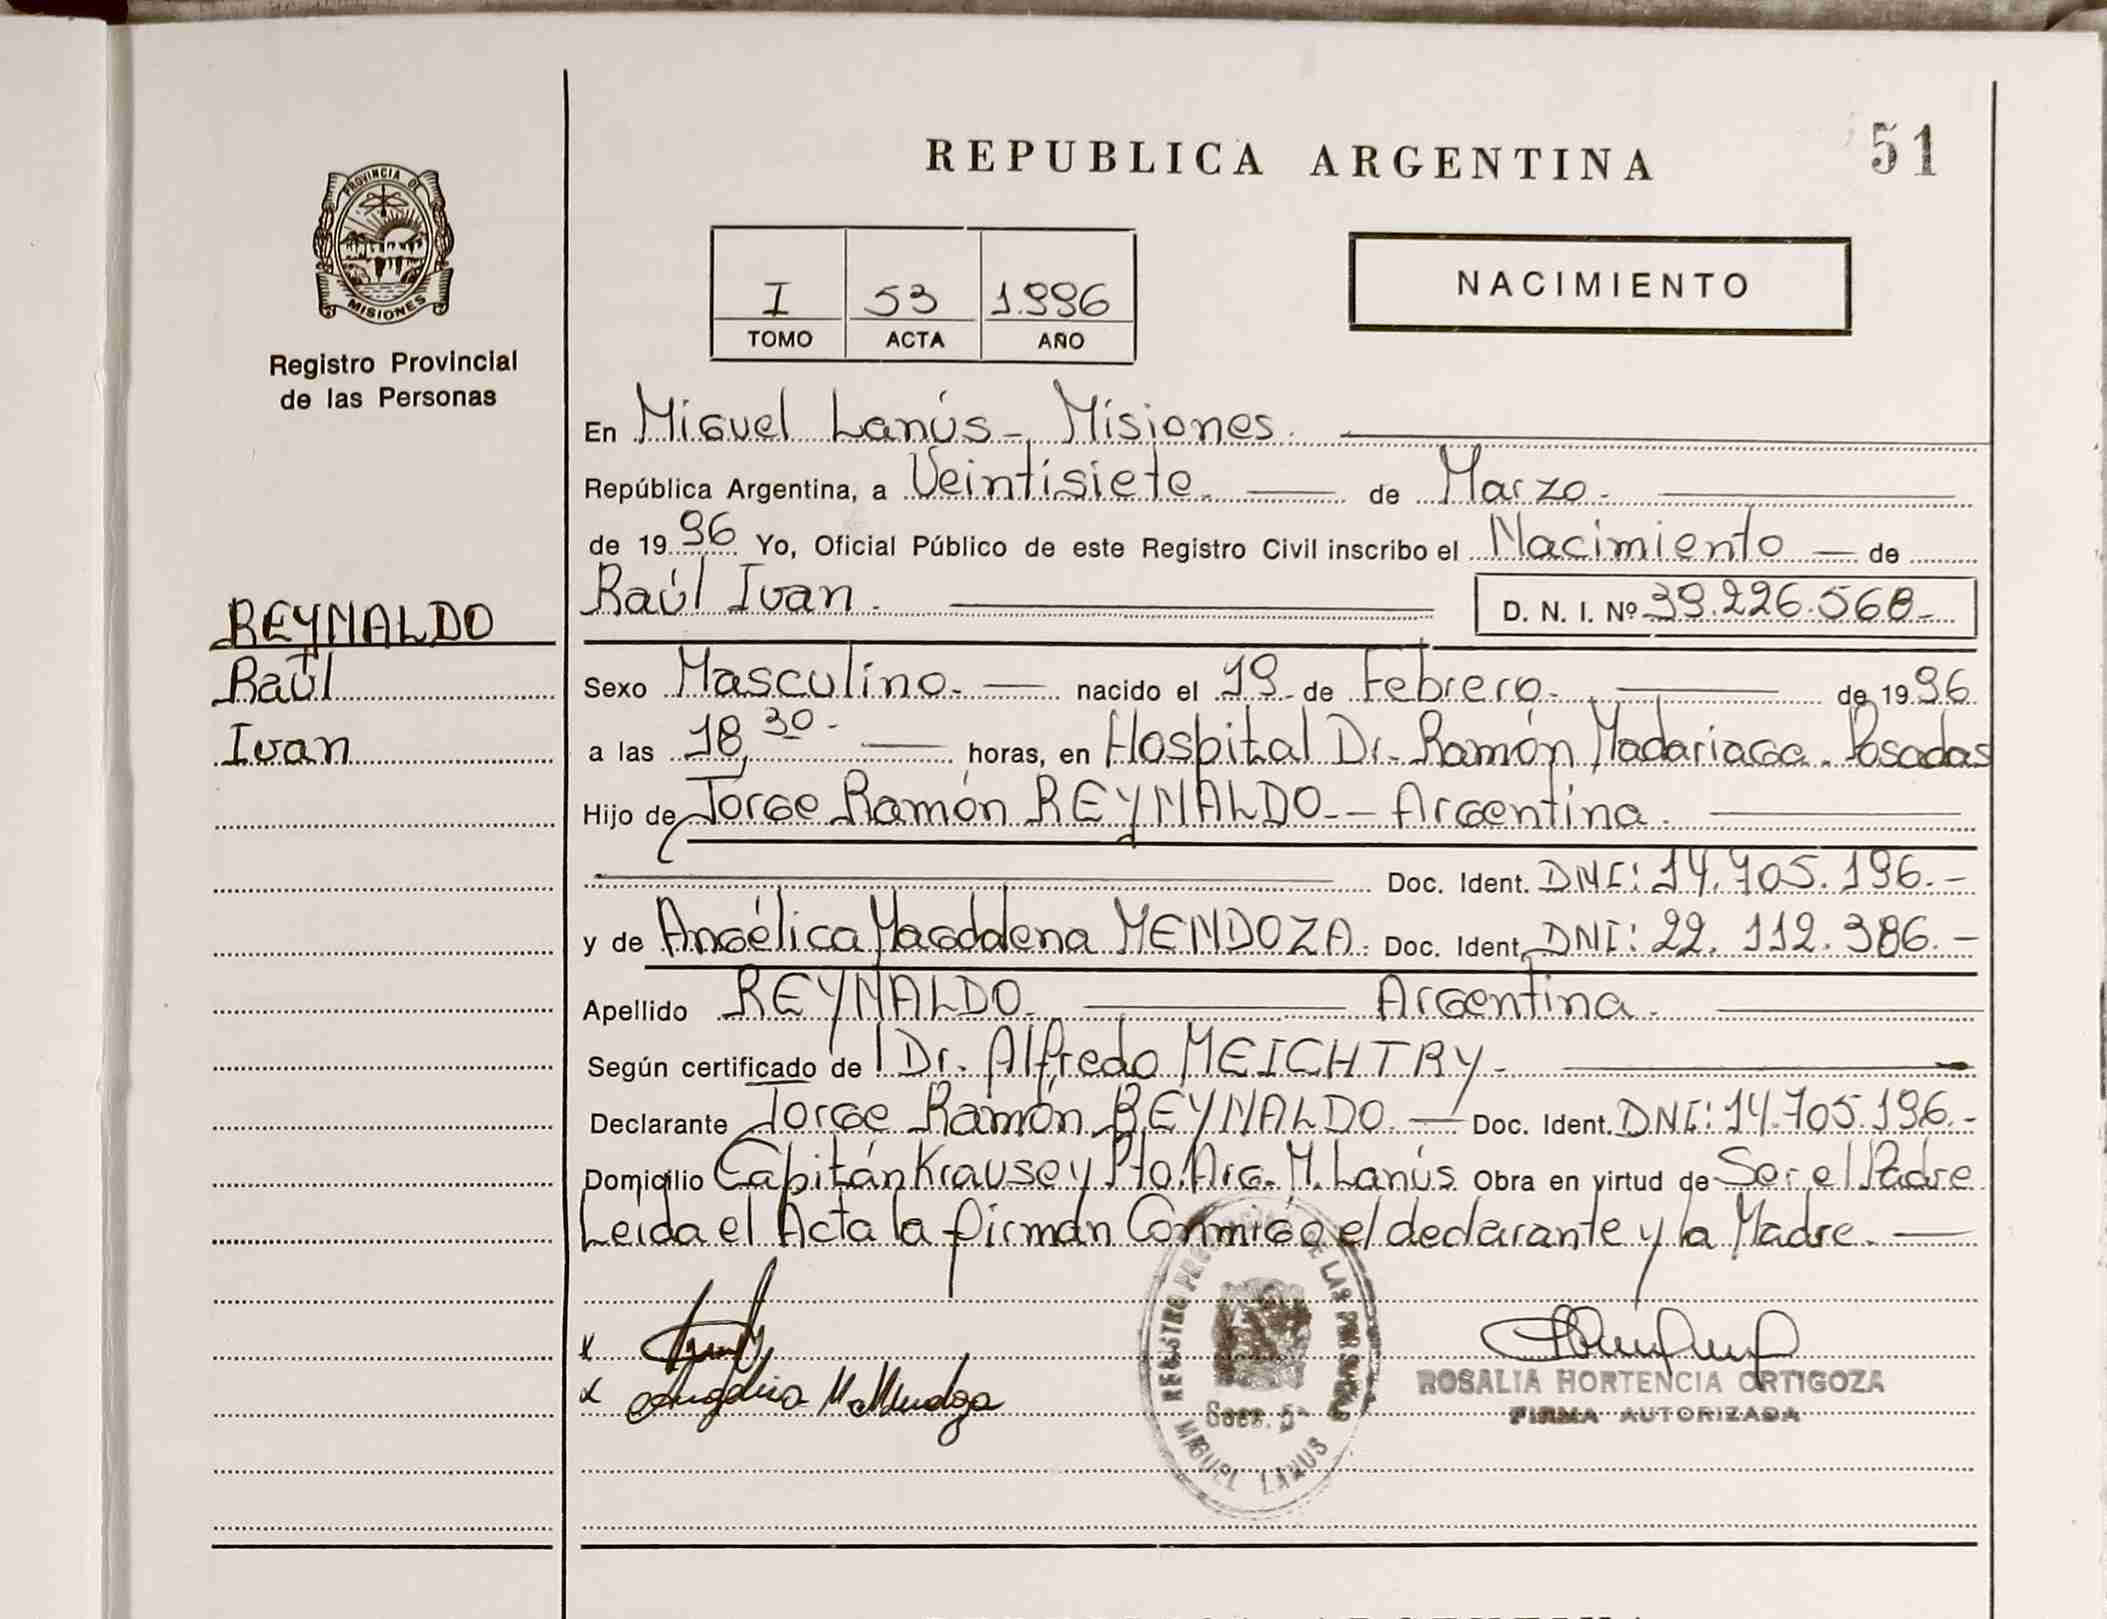 REPUBLICA ARGENTINA
51
PROVINCIA DE
MISIONES
Registro Provincial
de las Personas
I 53 1.996
TOMO ACTA AÑO
NACIMIENTO
En Miguel Lanús - Misiones.
República Argentina, a Veintisiete. de Marzo.
de 1996 Yo, Oficial Público de este Registro Civil inscribo el Nacimiento de
Raúl Ivan. D. N. I. Nº 39.226.568.-
REYNALDO
Raúl
Ivan
Sexo Masculino. nacido el 19 de Febrero. de 1996
a las 18,30 horas, en Hospital Dr. Ramón Madariaga. Posadas
Hijo de Jorge Ramón REYNALDO.- Argentina.
Doc. Ident. DNI: 14.705.196.-
y de Angélica Magddena MENDOZA. Doc. Ident. DNI: 22.112.386.-
Apellido REYNALDO. Argentina.
Según certificado de Dr. Alfredo MEICHTRY.
Declarante Jorge Ramón REYNALDO. Doc. Ident. DNI: 14.705.196.-
Domicilio Capitán Krause y Pto. Arg. M. Lanús. Obra en virtud de Ser el Padre
Leída el Acta la firman Conmigo el declarante y la Madre.
x
x Angelica M. Mendoza
REGISTRO PROVINCIAL DE LAS PERSONAS
Secc. 5ª
MIGUEL LANUS
ROSALIA HORTENCIA ORTIGOZA
FIRMA AUTORIZADA